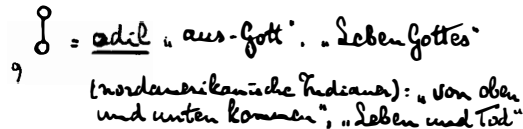 = odil „aus-Gott“. „Leben Gottes“
9 (nordamerikanische Indianer): „von oben
und unten kommen“, „Leben und Tod“